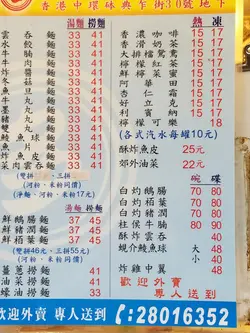 香港中環砵典乍街30號地下
湯麵 撈麵
雲吞麵 33 41
水餃麵 33 41
牛腩麵 33 41
炸醬麵 33 41
魚旦麵 33 41
牛丸麵 33 41
墨丸麵 33 41
豬手麵 33 41
雙丸麵 33 41
鯪魚球麵 33 41
魚片麵 33 41
炸魚皮麵 33 41
菜肉雲吞麵 33 41
(雙拼 三拼
(河粉、米粉同價)
(淨麵、河粉、米粉17元)
湯麵 撈麵
鮮鵝腸麵 37 45
鮮豬潤麵 37 45
鮮栢葉麵 37 45
(雙拼46元、三拼55元)
(河粉、米粉同價)
薑蔥撈麵 24
油菜撈麵 24
蠔油撈麵 24
熱 凍
香濃咖啡 15 17
香滑奶茶 15 17
檸檬紅茶 15 17
檸檬 15 17
阿華田 15 18
杏仁霜 15 18
好立克 15 18
利賓納 15 18
(各式汽水每罐10元)
酥炸魚皮 25元
郊外油菜 22元
碗 碟
白灼鵝腸 70 80
白灼豬潤 70 80
白灼栢葉 70 80
柱侯牛腩 70 80
酥炸雲吞 40 48
蜆介鯪魚球 大 48
小 40
炸雞中翼 48
歡迎外賣
專人送到
歡迎外賣 專人送到 28016352